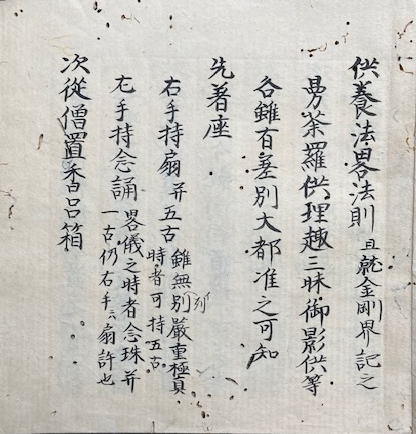 供養法畧法則 且就金剛界記之
曼荼羅供理趣三昧御影供等
各雖有差別大都准之可知
先著座
右手持扇并五古
雖無別嚴重極
時者可持五古
左手持念誦
畧儀之時者念珠并
一古仍右手ニ扇許也
次從僧置香呂箱